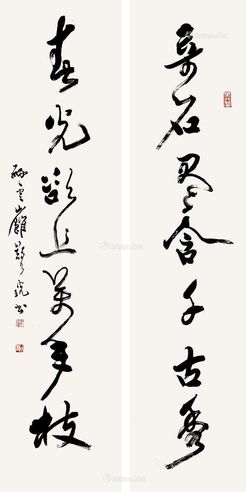 奇石尽含千古秀
春光欲上万年枝